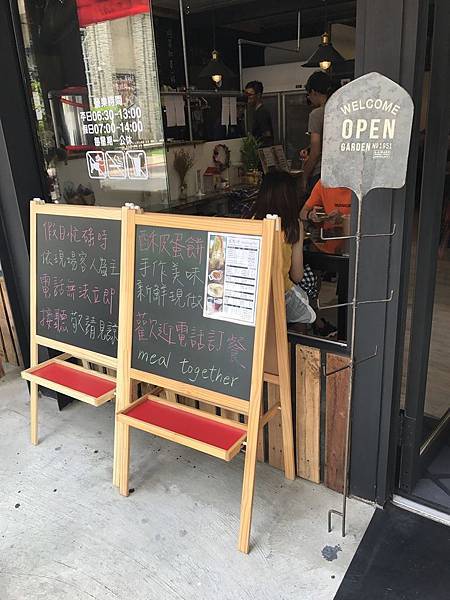 營業時間
平日06:30-13:00
假日07:00-14:00
每星期一公休
假日忙碌時
依現場客人為主
電話無法立即
接聽敬請見諒
酥皮蛋餅
手作美味
新鮮現做
歡迎電話訂餐
meal together
WELCOME
OPEN
GARDEN Nº1951